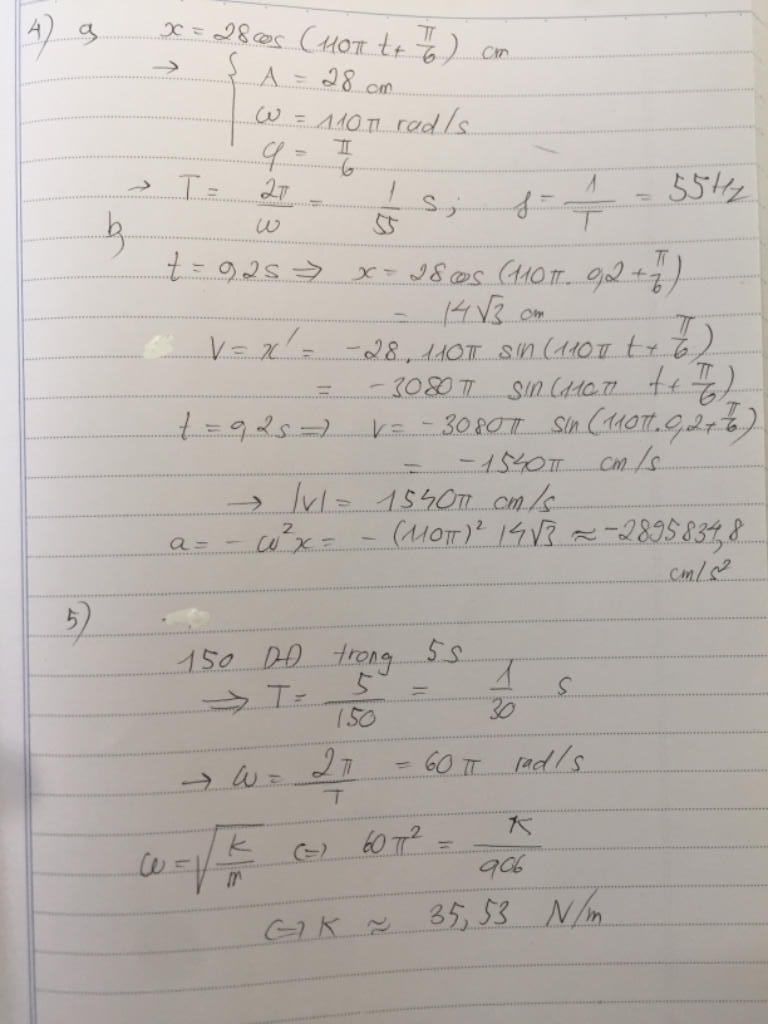 4) a, x = 28cos (110π t + π/6) cm
→ { A = 28 cm
ω = 110π rad/s
φ = π/6
→ T = 2π/ω = 1/55 s; f = 1/T = 55Hz
b,
t = 0,2s ⇒ x = 28cos (110π. 0,2 + π/6)
= 14√3 cm
V = x' = -28.110π sin(110π t + π/6)
= -3080π sin(110π t + π/6)
t = 0,2s ⇒ v = -3080π sin(110π.0,2+π/6)
= -1540π cm/s
→ |v| = 1540π cm/s
a = -ω²x = -(110π)² 14√3 ≈ -2895834,8
cm/s²
5)
150 DĐ trong 5s
⇒ T = 5/150 = 1/30 s
→ ω = 2π/T = 60π rad/s
ω = √(K/m) ⇔ 60π² = K/0,06
⇔ K ≈ 35,53 N/m